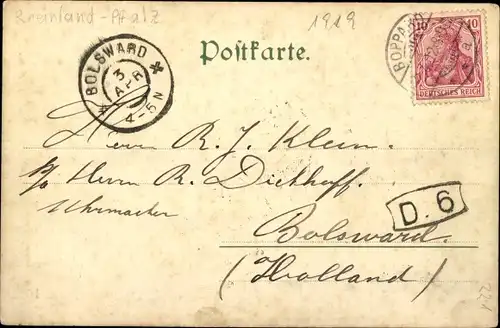 Rheinland-Pfalz
1919
Postkarte.
BOLSWARD
3
APR
4-5N
BOPPARD
10 10
DEUTSCHES REICH
Herrn R. J. Klein.
p/o Herrn R. Dickhoff.
Uhrmacher
D. 6
Bolsward.
(Holland)